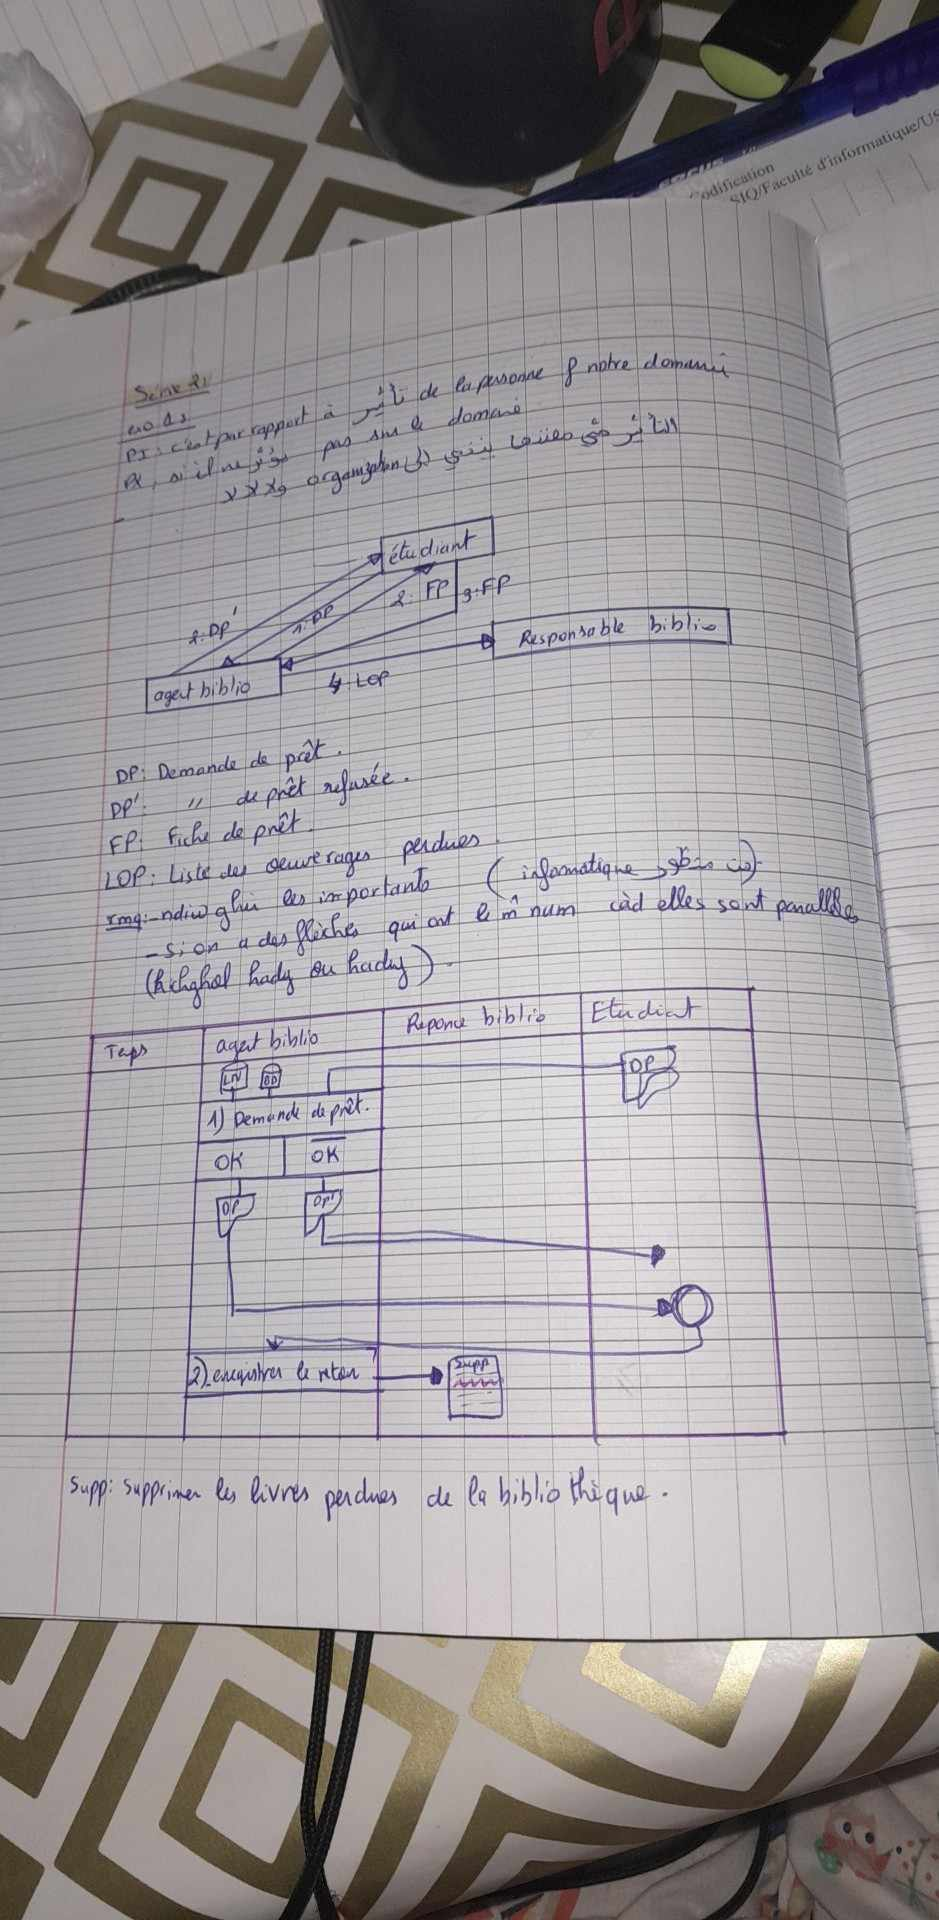 odification
SIQ/Faculté d'informatique/US
Série 2:
exo 1:
PI: c'est par rapport à تأثير de la personne notre domaine
, si il ne مؤثر pas sur le domaine
xxx organization التأثير
étudiant
2: DP'
1: DP
2: FP
3: FP
Responsable biblio
agent biblio
4: LOP
DP: Demande de prêt.
DP': " de prêt refusée.
FP: Fiche de prêt.
LOP: Liste des oeuverages perdues.
rmq: - ndiw ghir les importants (informatique من منظور).
- si on a des flèches qui ont le m̂ num càd elles sont parallèles
(kichghol hady ou hady).
Temps
agent biblio
Réponce biblio
Etudiant
DP
1) Demande de prêt.
OK
OK
DP
DP'
2) enregistrer le retour
Supp
Supp: Supprimer les livres perdues de la bibliothèque.